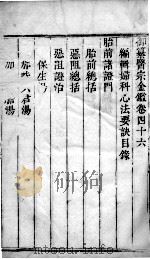 御纂醫宗金鑑卷四十六
編輯婦科心法要訣目錄
胎前諸證門
胎前總括
惡阻總括
惡阻證治
保生湯
六君湯
湯